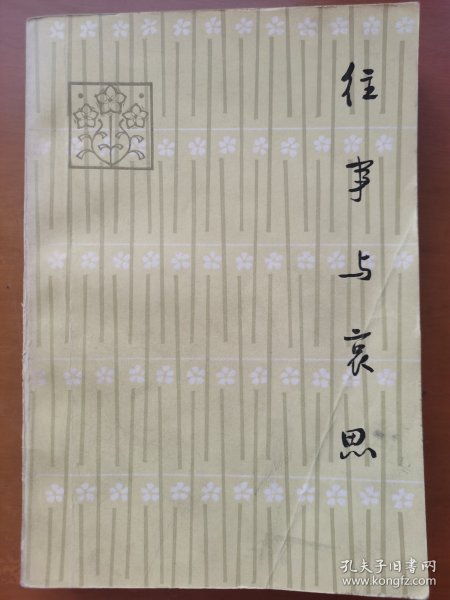 往事与哀思
孔夫子旧书网
www.kongfz.com